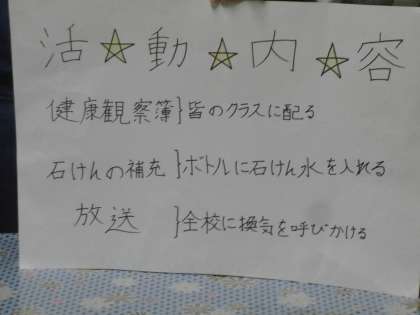 活☆動☆内☆容
健康観察簿}皆のクラスに配る
石けんの補充}ボトルに石けん水を入れる
放送}全校に換気を呼びかける